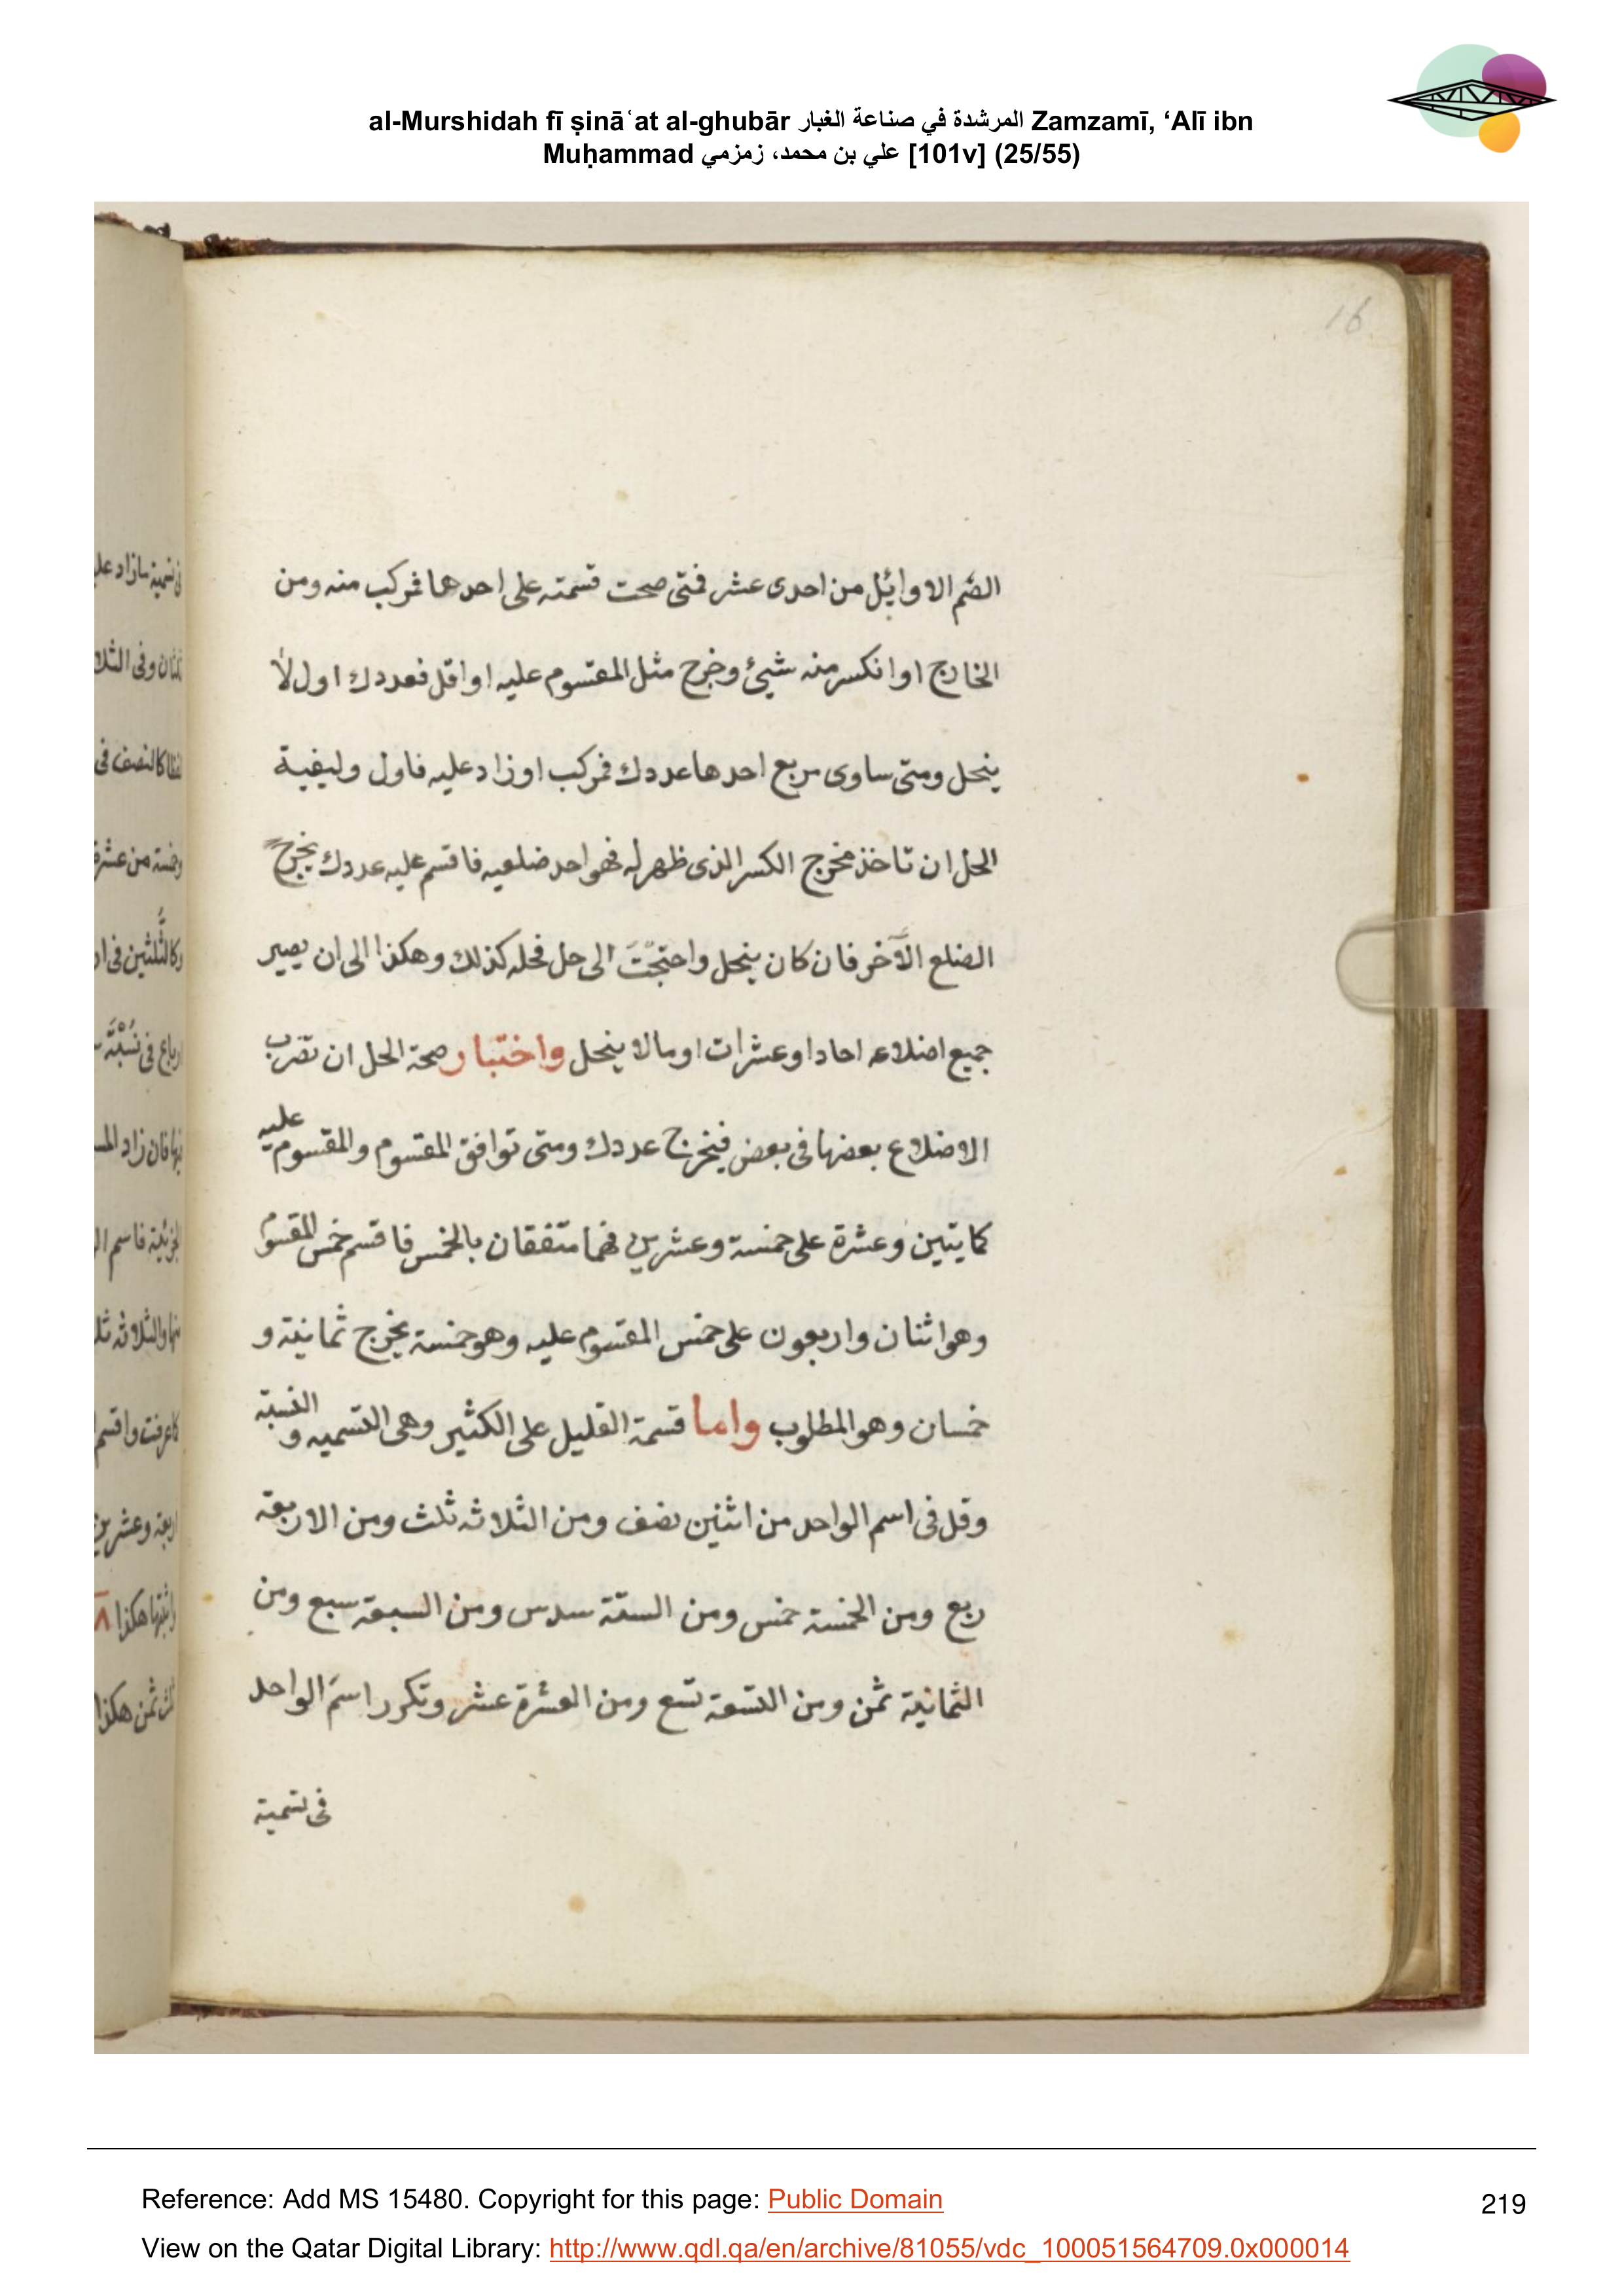 al-Murshidah fī ṣināʿat al-ghubār المرشدة في صناعة الغبار Zamzamī, ‘Alī ibn
Muḥammad علي بن محمد، زمزمي [101v] (25/55)
16
الصم الاوائل من احدى عشر فمتى صحت قسمته على احدها فمركب منه ومن
الخارج او انكسر منه شيئ وخرج مثل المقسوم عليه او اقل فعددك اول لا
ينحل ومتى ساوى مربع احدها عددك فمركب او زاد عليه فاول وليفية
الحل ان تاخذ مخرج الكسر الذى ظهر له فهو احد ضلعيه فاقسم عليه عددك يخرج
الضلع الآخر فان كان ينحل واحتجت الى حل فحله كذلك وهكذا الى ان يصير
جميع اضلاعه احادا او عشرات او مالا ينحل واختبار صحة الحل ان تضرب
الاضلاع بعضها فى بعض فيخرج عددك ومتى توافق المقسوم والمقسوم عليه
كمايتين وعشرة على خمسة وعشرين فهما متفقان بالخمس فاقسم خمس المقسوم
وهو اثنان واربعون على خمس المقسوم عليه وهو خمسة يخرج ثمانية و
خمسان وهو المطلوب واما قسمة القليل على الكثير وهى التسميه و النسبة
وقل فى اسم الواحد من اثنين نصف ومن الثلاثه ثلث ومن الاربعة
ربع ومن الخمسة خمس ومن الستة سدس ومن السبعة سبع ومن
الثمانية ثمن ومن التسعة تسع ومن العشرة عشر وتكرر اسم الواحد
فى تسمية
Reference: Add MS 15480. Copyright for this page: Public Domain
219
View on the Qatar Digital Library: http://www.qdl.qa/en/archive/81055/vdc_100051564709.0x000014